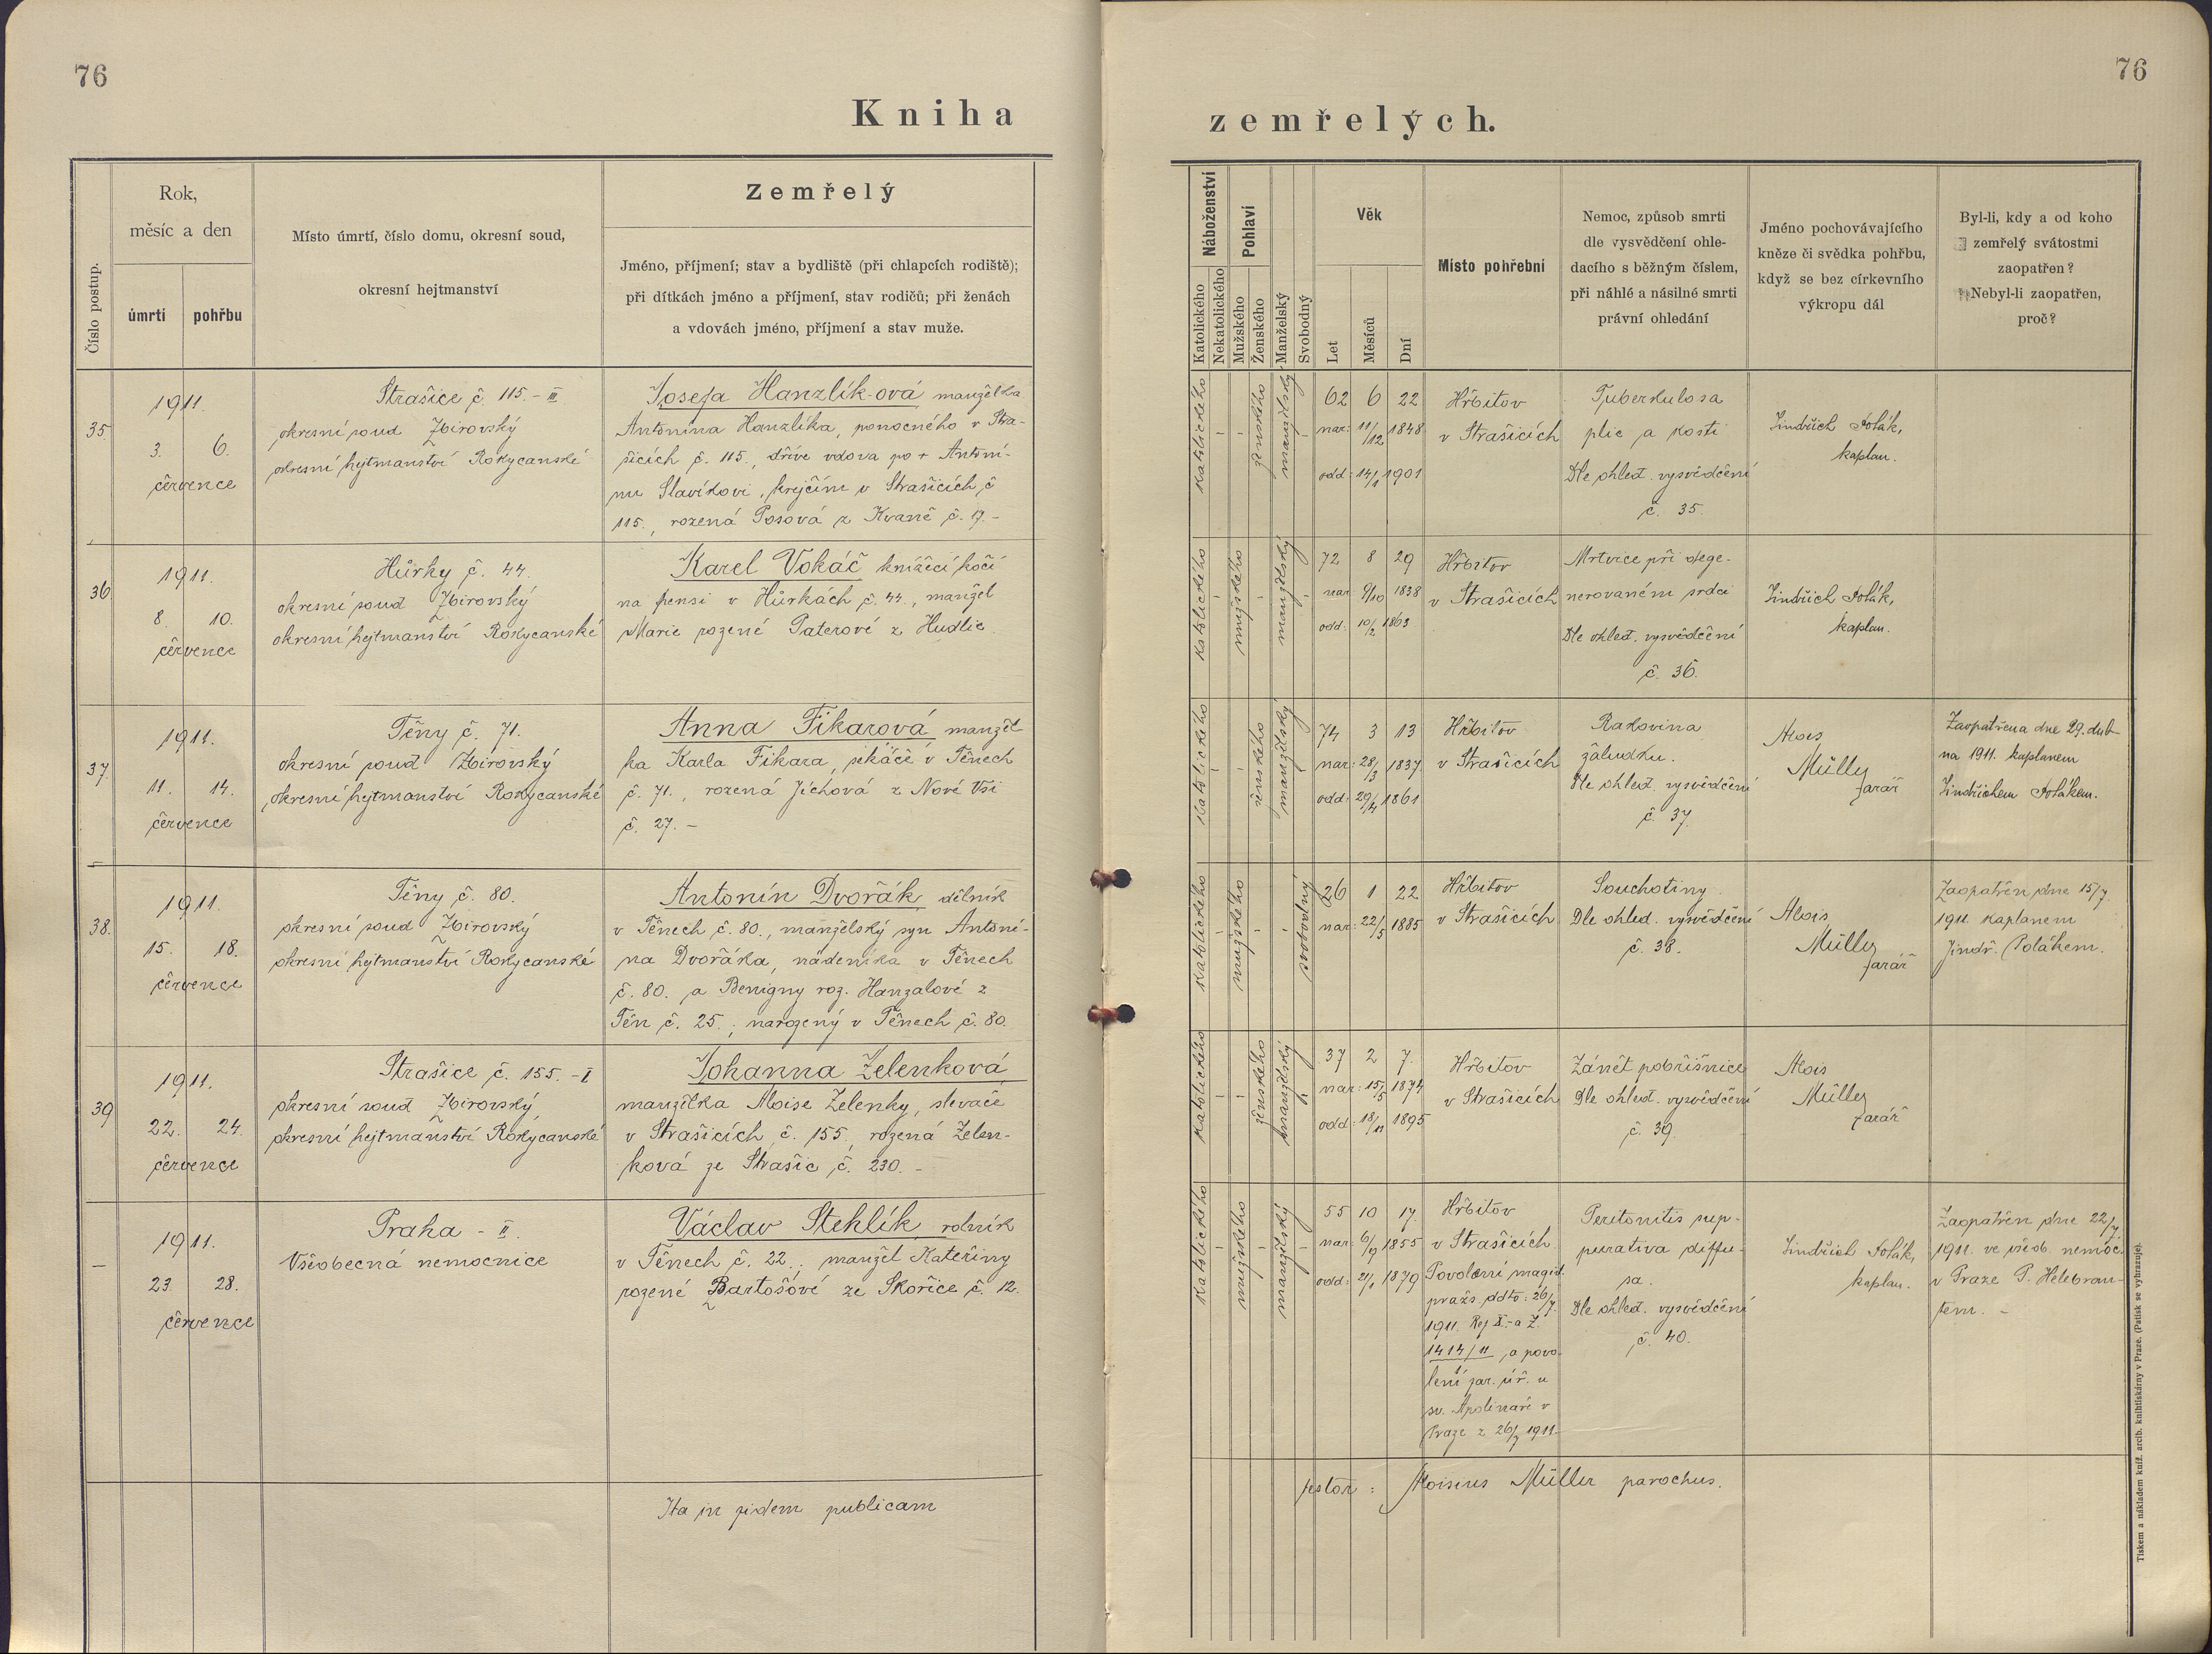 76
76
Kniha
zemřelých.
Číslo postup.
Rok,
měsíc a den
úmrtí
pohřbu
Místo úmrtí, číslo domu, okresní soud,
okresní hejtmanství
Zemřelý
Jméno, příjmení; stav a bydliště (při chlapcích rodiště);
při dítkách jméno a příjmení, stav rodičů; při ženách
a vdovách jméno, příjmení a stav muže.
Náboženství
Katolického
Nekatolického
Pohlaví
Mužského
Ženského
Manželský
Svobodný
Věk
Let
Měsíců
Dní
Místo pohřební
Nemoc, způsob smrti
dle vysvědčení ohle-
dacího s běžným číslem,
při náhlé a násilné smrti
právní ohledání
Jméno pochovávajícího
kněze či svědka pohřbu,
když se bez církevního
výkropu dál
Byl-li, kdy a od koho
zemřelý svátostmi
zaopatřen?
Nebyl-li zaopatřen,
proč?
35.
1911.
3. 6.
července
Strašice č. 115. - III
okresní soud Zbirovský
okresní hejtmanství Rokycanské
Josefa Hanzlík-ová manželka
Antonína Hanzlíka, ponocného v Stra-
šicích č. 115., dříve vdova po + Antoní-
nu Slavíkovi, krejčím v Strašicích č
115., rozená Posová z Kvaně č. 17. -
katolického
-
-
ženského
manželský
-
62 6 22
nar: 11/12 1848
odd: 14/1 1901
Hřbitov
v Strašicích
Tuberkulosa
plic a kostí
Dle ohled. vysvědčení
č. 35.
Jindřich Polák,
kaplan.
36.
1911.
8. 10.
července
Hůrky č. 44.
okresní soud Zbirovský
okresní hejtmanství Rokycanské
Karel Vokáč knížecí kočí
na pensi v Hůrkách č. 44., manžel
Marie rozené Paterové z Hudlic
katolického
-
mužského
-
manželský
-
72 8 29
nar 9/10 1838
odd: 10/2 1863
Hřbitov
v Strašicích
Mrtvice při dege-
nerovaném srdci
Dle ohled. vysvědčení
č. 36.
Jindřich Polák,
kaplan.
37.
1911.
11. 14.
července
Těny č. 71.
okresní soud Zbirovský
okresní hejtmanství Rokycanské
Anna Fikarová manžel
ka Karla Fikara, sekáče v Těnech
č. 71., rozená Jíchová z Nové Vsi
č. 27. -
katolického
-
-
ženského
manželský
-
74 3 13
nar: 28/3 1837
odd: 29/4 1861
Hřbitov
v Strašicích
Rakovina
žaludku.
Dle ohled. vysvědčení
č. 37.
Alois
Müller
farář
Zaopatřena dne 29. dub-
na 1911. kaplanem
Jindřichem Polákem.
38.
1911.
15. 18.
července
Těny č. 80.
okresní soud Zbirovský
okresní hejtmanství Rokycanské
Antonín Dvořák dělník
v Těnech č. 80., manželský syn Antoní-
na Dvořáka, nádeníka v Těnech
č. 80. a Benigny roz. Hanzalové z
Těn č. 25.; narozený v Těnech č. 80.
katolického
-
mužského
-
-
svobodný
26 1 22
nar: 22/5 1885
Hřbitov
v Strašicích
Souchotiny
Dle ohled. vysvědčení
č. 38.
Alois
Müller
farář
Zaopatřen dne 15/7.
1911. kaplanem
Jindř. Polákem.
39
1911.
22. 24.
července
Strašice č. 155. - I
okresní soud Zbirovský
okresní hejtmanství Rokycanské
Johanna Zelenková
manželka Aloise Zelenky, slevače
v Strašicích č. 155., rozená Zelen-
ková ze Strašic č. 230. -
katolického
-
-
ženského
manželský
-
37 2 7.
nar: 15/5 1874
odd: 18/11 1895
Hřbitov
v Strašicích
Zánět pobřišnice
Dle ohled. vysvědčení
č. 39.
Alois
Müller
farář
-
1911.
23. 28.
července
Praha - II.
Všeobecná nemocnice
Václav Stehlík, rolník
v Těnech č. 22., manžel Kateřiny
rozené Bartošové ze Skořice č. 12.
katolického
-
mužského
-
manželský
-
55 10 17.
nar: 6/9 1855
odd: 21/1 1879
Hřbitov
v Strašicích
Povolení magist.
pražs. ddto: 26/7.
1911. Rej X.- a Z.
1414/11 a povo-
lení far. úř. u
sv. Apolináře v
Praze z 26/7 1911.
Peritonitis sup-
purativa diffu-
sa.
Dle ohled. vysvědčení
č. 40.
Jindřich Polák,
kaplan.
Zaopatřen dne 22/7
1911. ve všeob nemoc.
v Praze P. Helebran-
tem. -
Ita in fidem publicam
testor: Aloisius Müller parochus.
Tiskem a nákladem kníž. arcib. knihtiskárny v Praze. (Patisk se vyhrazuje).